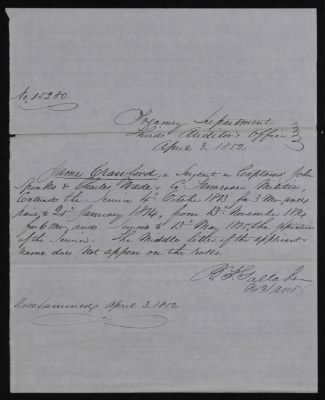 No. 15280.
Treasury Department
Third Auditor's Office
April 3. 1852.
James Crawford, a Sergeant in Captains John
& Charles Wade's Co Tennessee Militia,
Entered the Service 4 October 1813 for 3 Mo, and
paid to 25th January 1814, from 13th November 1814
for 6 Mo, and to 13th May 1815, the expiration
of the Service. The Middle letter of the applicants
name does not appear on the rolls.
Gallaher
Reexamined, April 3. 1852